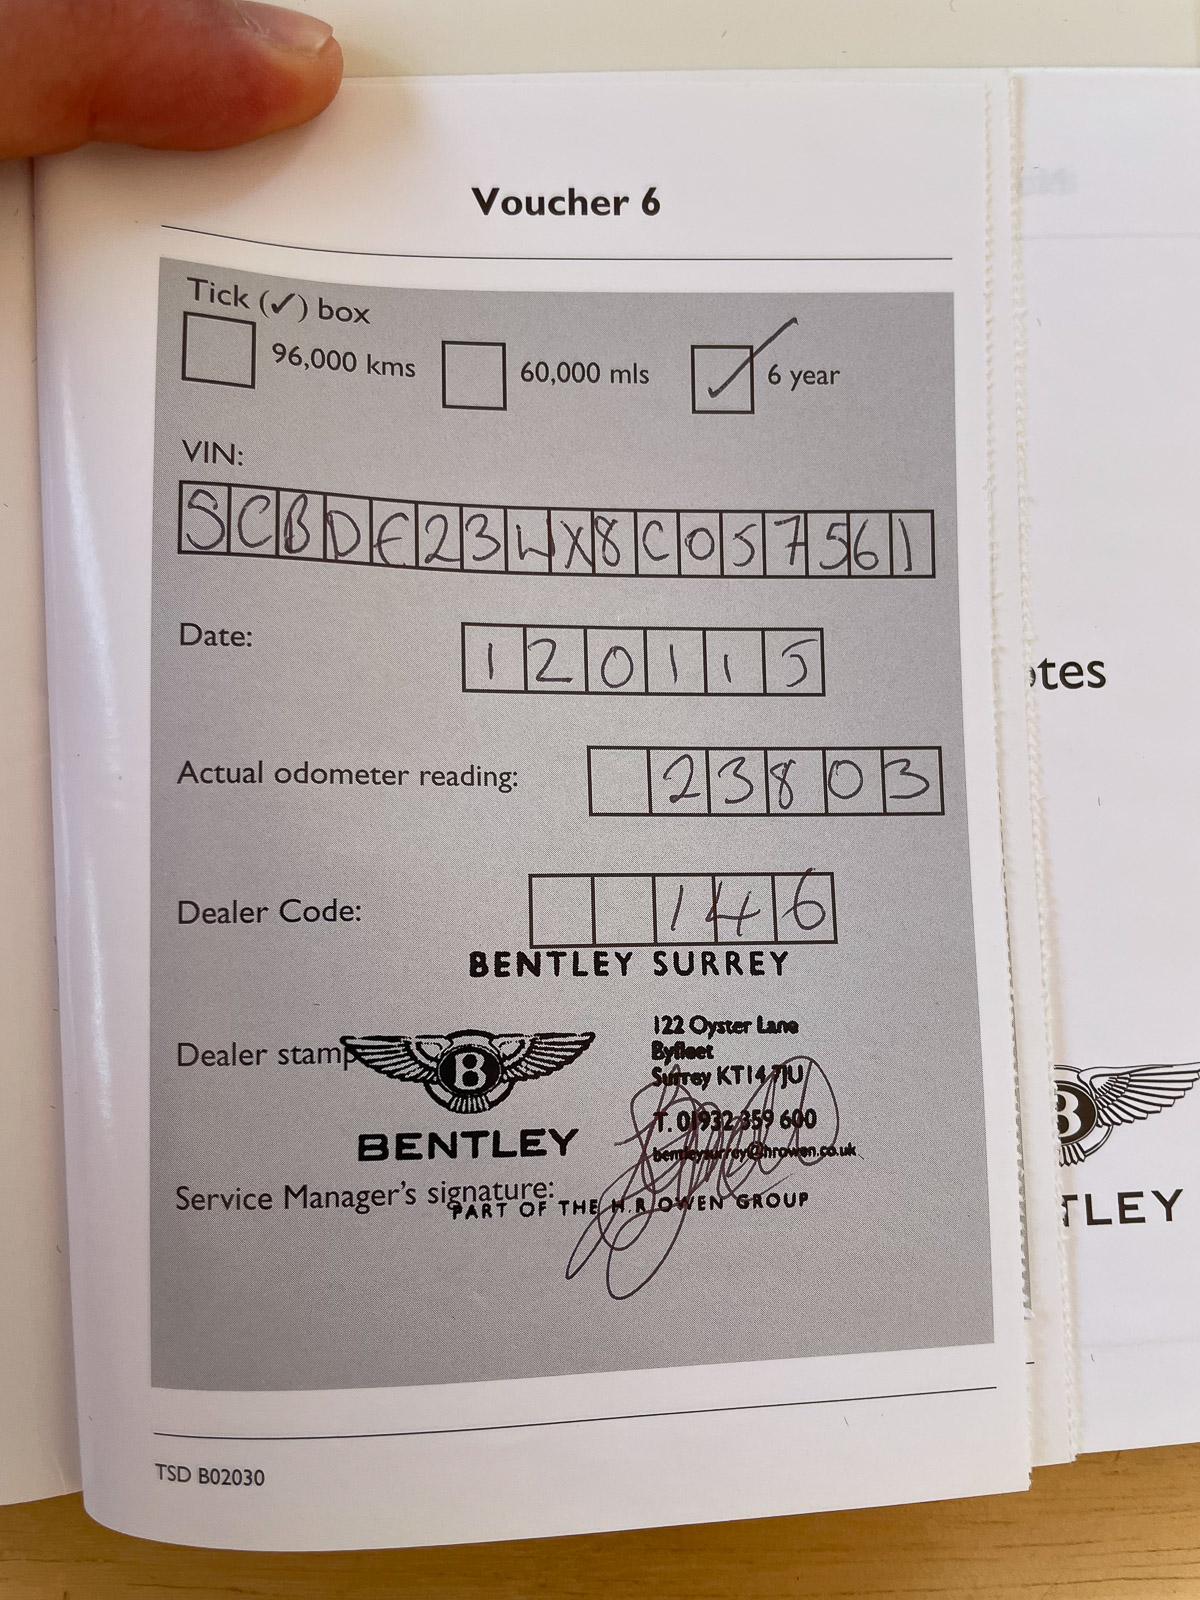 Voucher 6
Tick (✓) box
96,000 kms
60,000 mls
6 year
VIN:
SCBDE23WX8C057561
Date:
120115
Actual odometer reading:
23803
Dealer Code:
146
BENTLEY SURREY
Dealer stamp
B
BENTLEY
122 Oyster Lane
Byfleet
Surrey KT14 7JU
T. 01932 359 600
bentleysurrey@hrowen.co.uk
Service Manager's signature:
PART OF THE H.R OWEN GROUP
TSD B02030
otes
B
TLEY